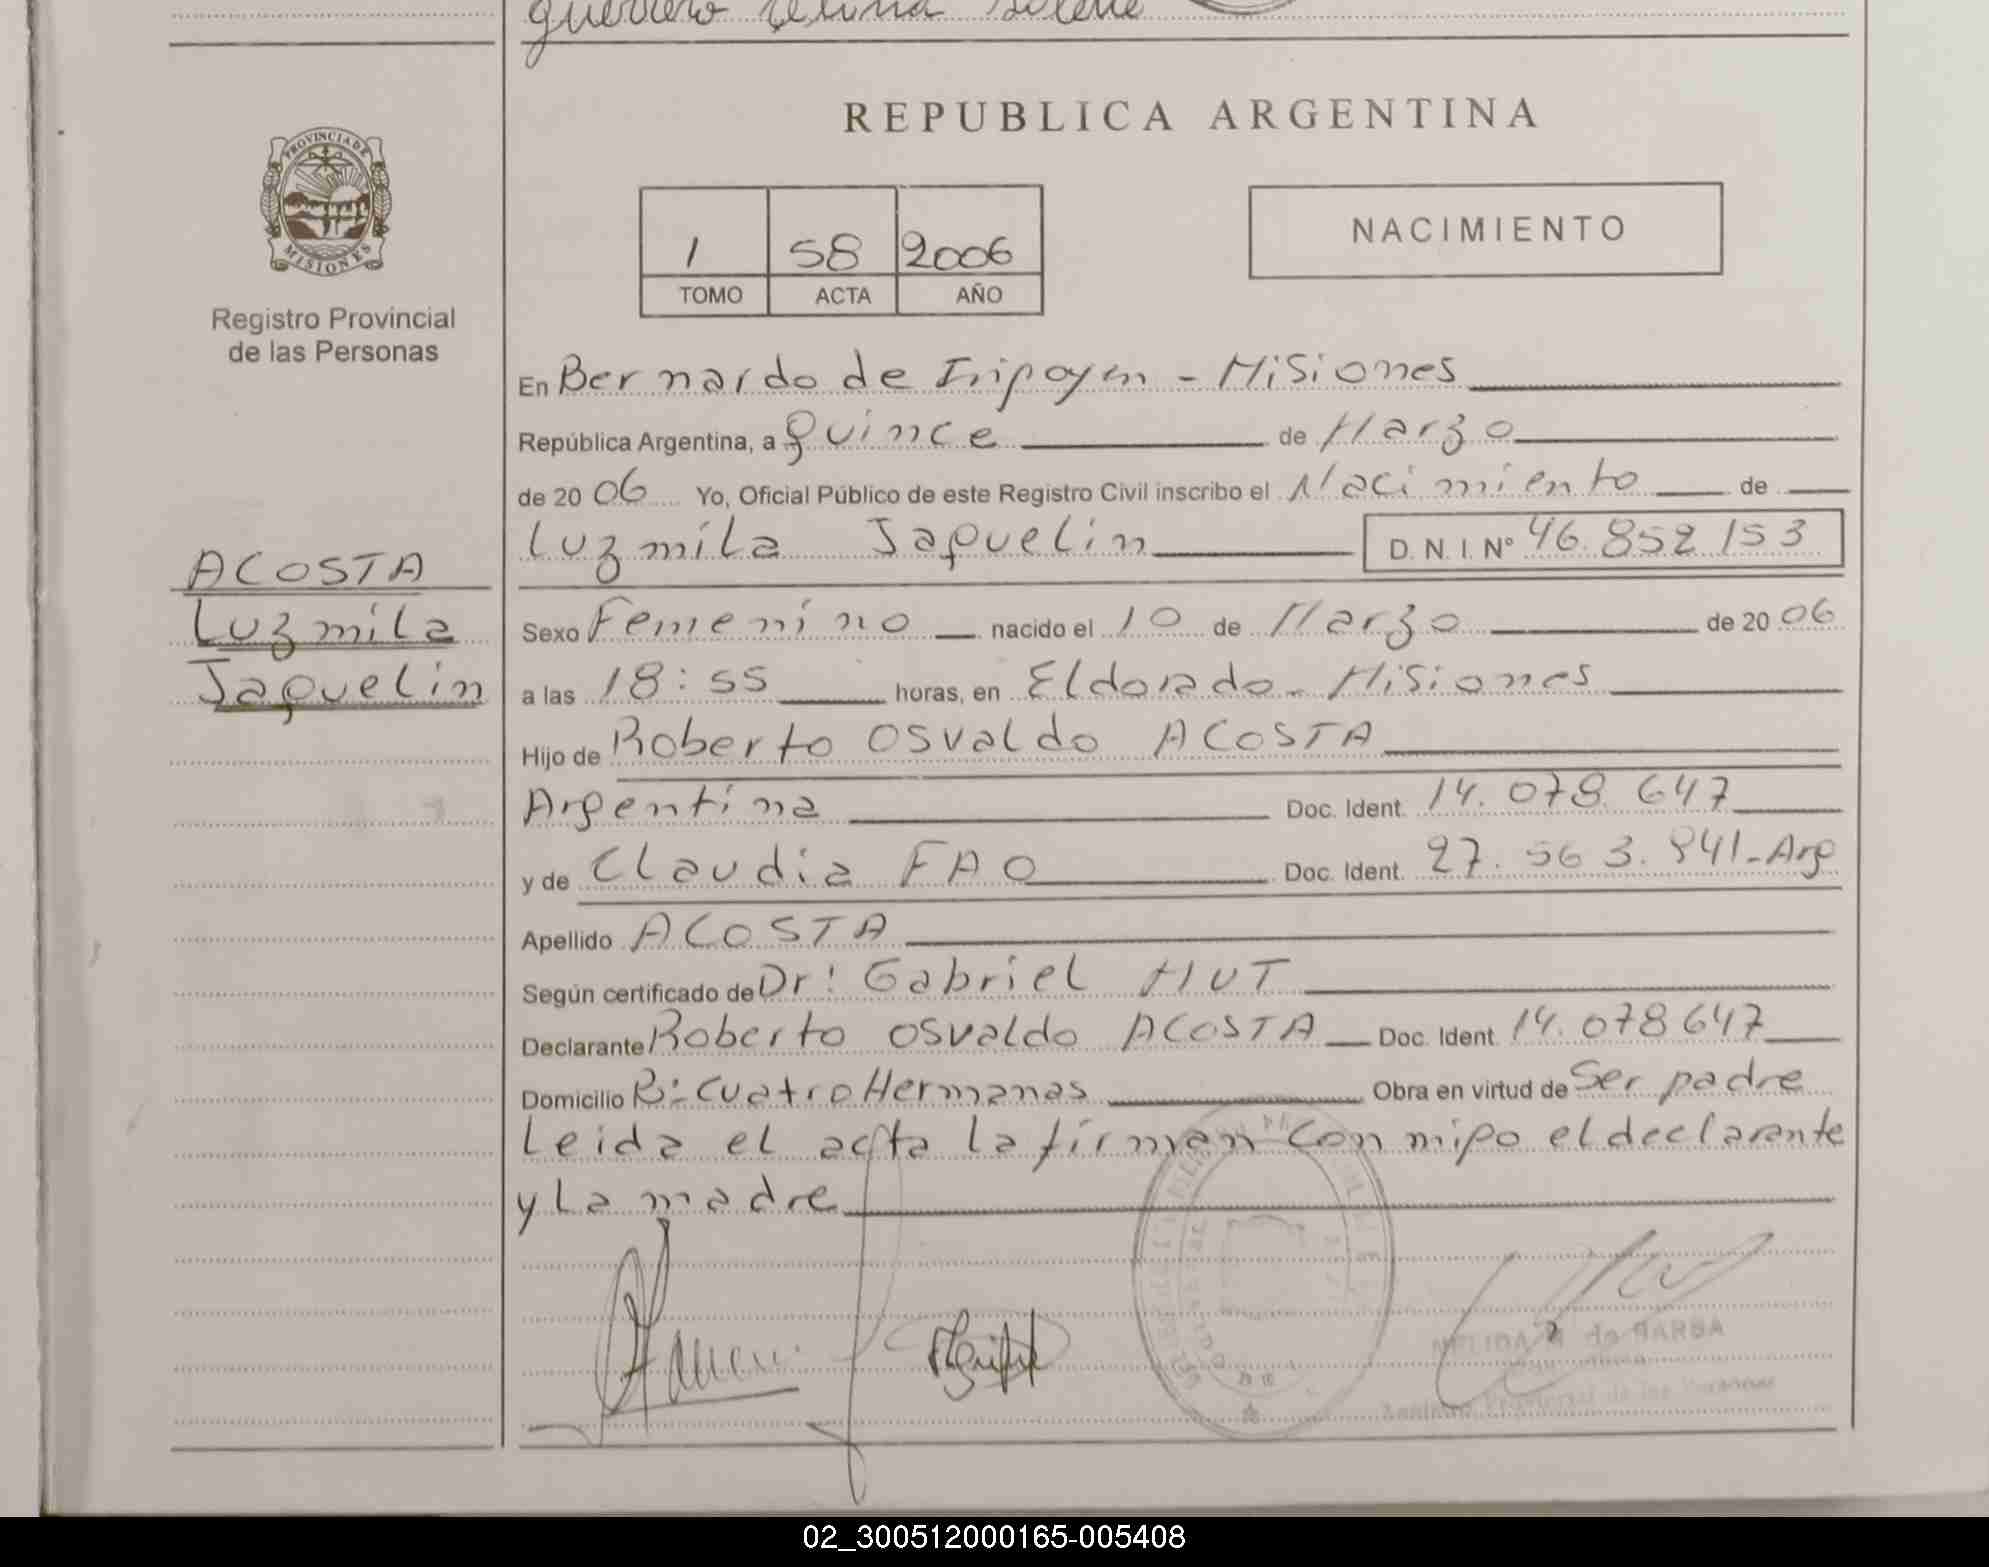 guerrero
REPUBLICA ARGENTINA
PROVINCIA DE
MISIONES
Registro Provincial
de las Personas
1 58 2006
TOMO ACTA AÑO
NACIMIENTO
En Bernardo de Iripoyen - Misiones
República Argentina, a quince de Marzo
de 2006 Yo, Oficial Público de este Registro Civil inscribo el Nacimiento de
Luzmila Jaquelin D. N. I. Nº 46.852.153
ACOSTA
Luzmila
Jaquelin
Sexo Femenino nacido el 10 de Marzo de 2006
a las 18:55 horas, en Eldorado - Misiones
Hijo de Roberto Osvaldo ACOSTA
Argentina Doc. Ident. 14.078.647
y de Claudia FAO Doc. Ident. 27.563.841-Arg
Apellido ACOSTA
Según certificado de Dr: Gabriel HUT
Declarante Roberto Osvaldo ACOSTA Doc. Ident. 14.078647
Domicilio B: Cuatro Hermanas Obra en virtud de Ser padre
Leida el acta la firman con mipo el declarante
y La madre
de BARBA
02_300512000165-005408